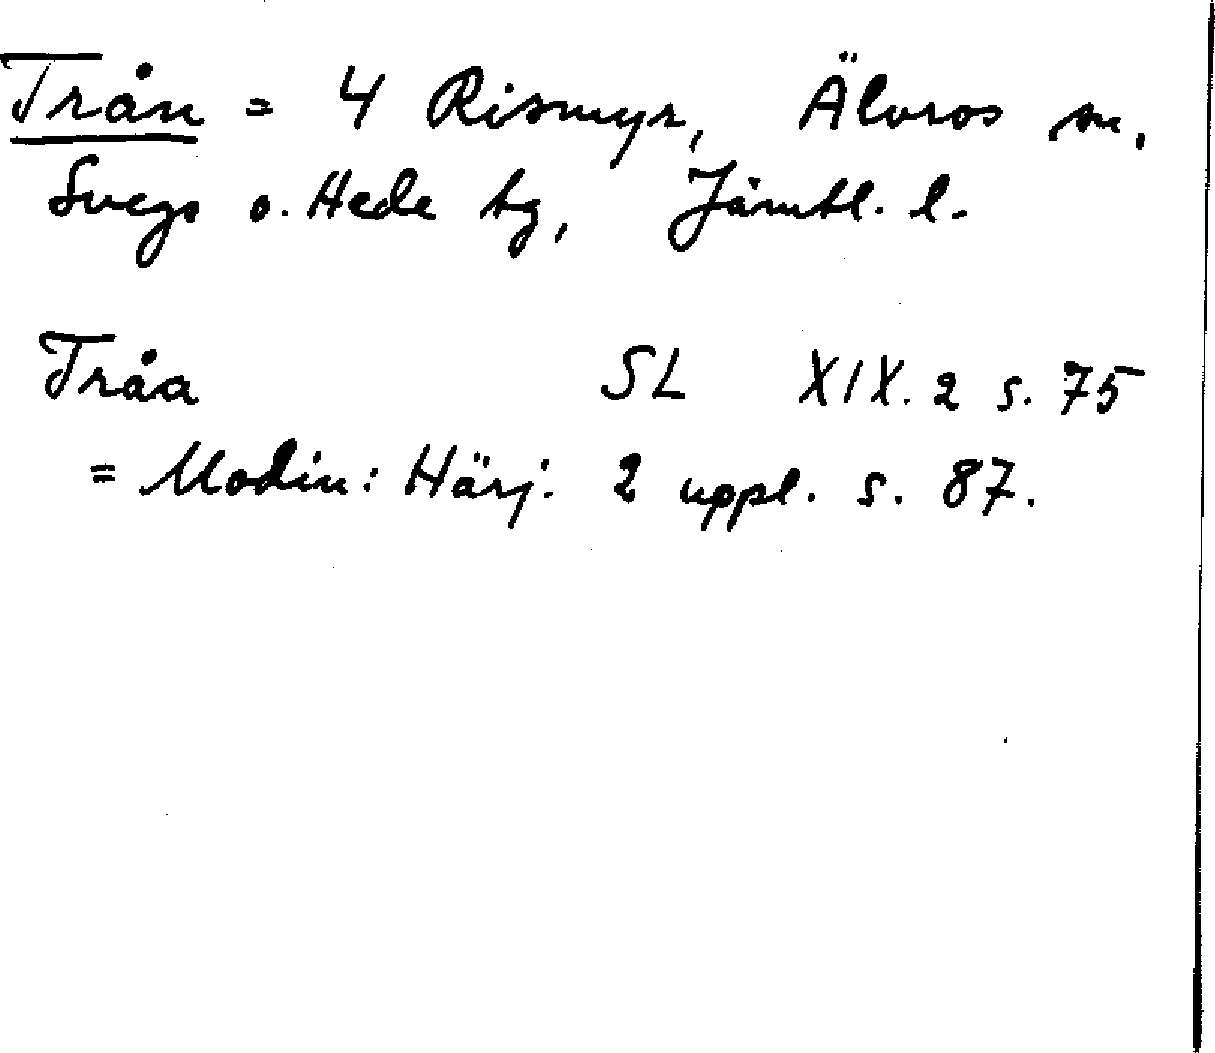 Trån = 4 Rismyr, Älvros sn,
Svegs o. Hede tg, Jämtl. l.
Tråa SL XIX. 2 s. 75
= Modin: Härj. 2 uppl. s. 87.